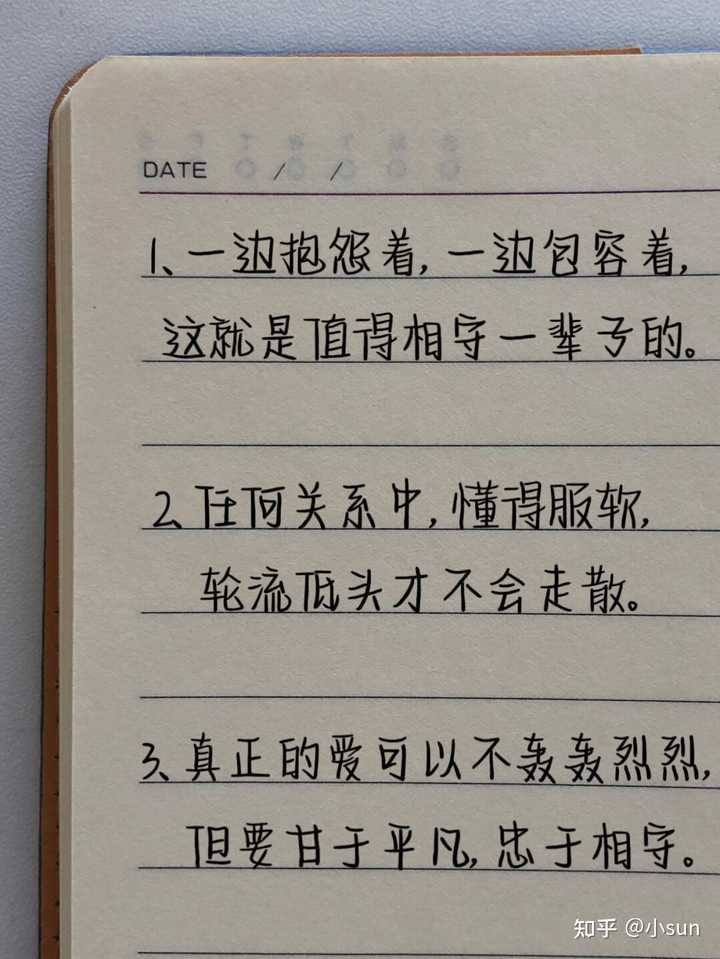 DATE / /
1、一边抱怨着,一边包容着,
这就是值得相守一辈子的。
2、任何关系中,懂得服软,
轮流低头才不会走散。
3、真正的爱可以不轰轰烈烈,
但要甘于平凡,忠于相守。
知乎 @小sun